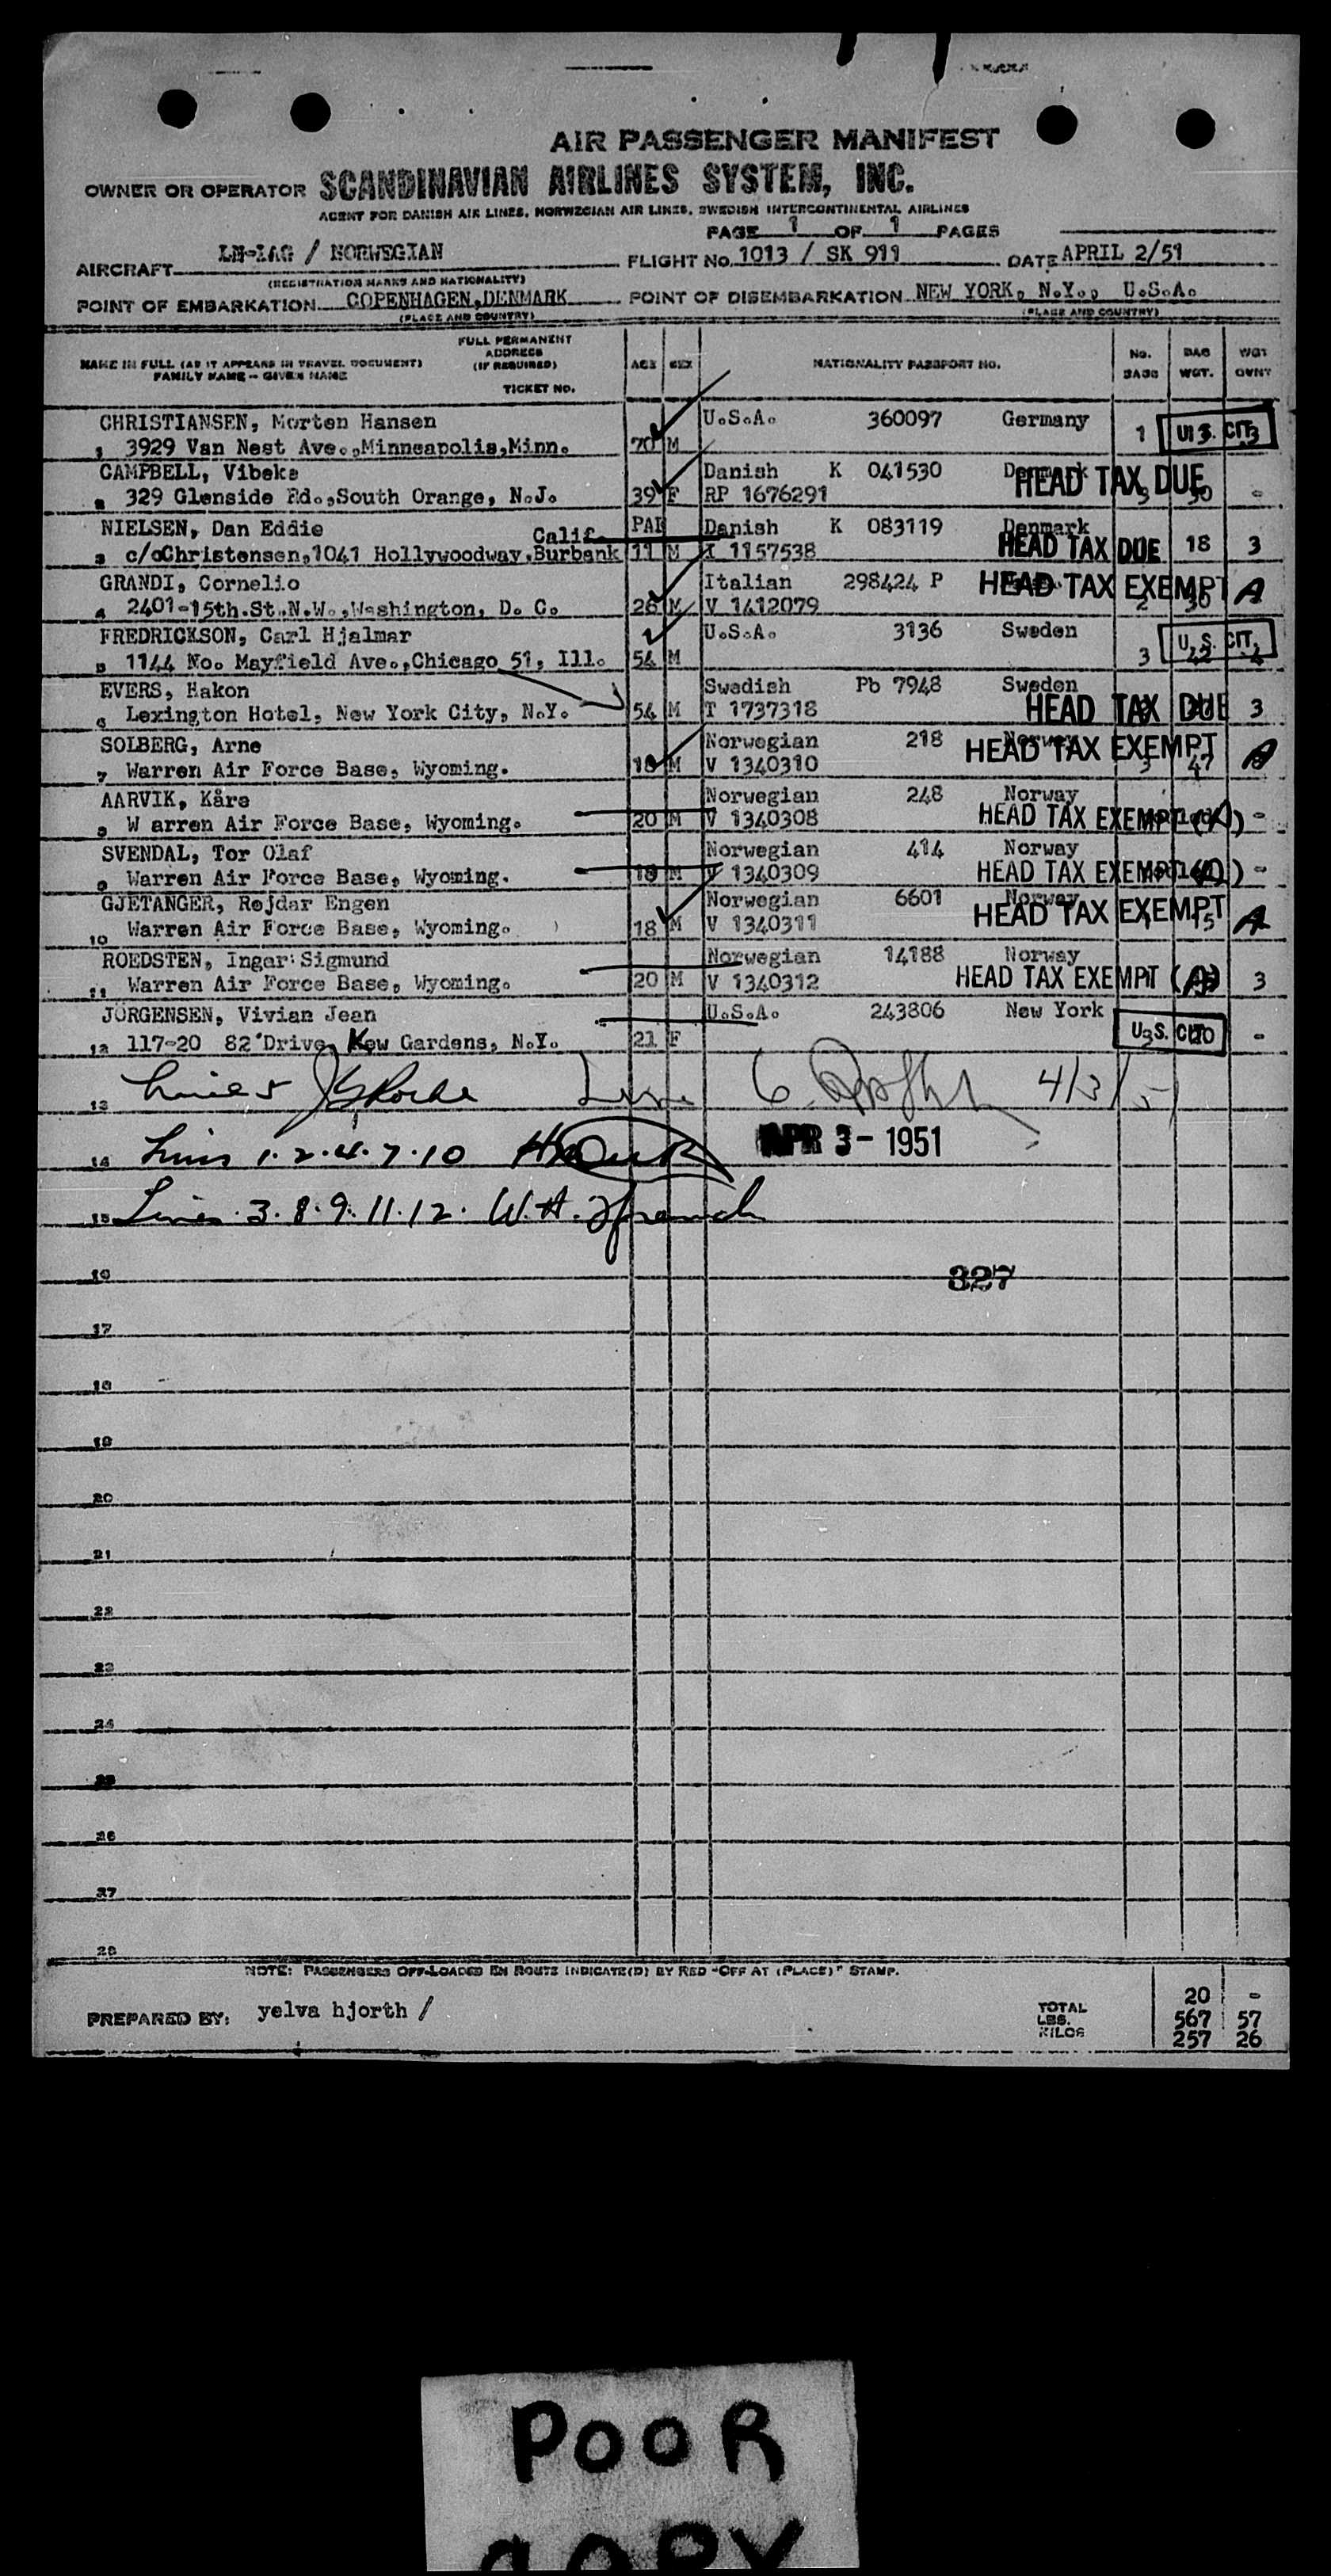 AIR PASSENGER MANIFEST
OWNER OR OPERATOR SCANDINAVIAN AIRLINES SYSTEM, INC.
AGENT FOR DANISH AIR LINES, NORWEGIAN AIR LINES, SWEDISH INTERCONTINENTAL AIRLINES
PAGE 1 OF 1 PAGES
AIRCRAFT LN-IAG / NORWEGIAN FLIGHT No. 1013 / SK 911 DATE APRIL 2/51
(REGISTRATION MARKS AND NATIONALITY)
POINT OF EMBARKATION COPENHAGEN,DENMARK POINT OF DISEMBARKATION NEW YORK, N.Y., U.S.A.
(PLACE AND COUNTRY) (PLACE AND COUNTRY)
FULL PERMANENT
ADDRESS
NAME IN FULL (AS IT APPEARS IN TRAVEL DOCUMENT) (IF REQUIRED) AGE SEX NATIONALITY PASSPORT NO. No. BAGS BAG WGT. WGT OVNT
FAMILY NAME - GIVEN NAME
TICKET NO.
CHRISTIANSEN, Morten Hansen U.S.A. 360097 Germany
1 3929 Van Nest Ave.,Minneapolis,Minn. 70 M 1 U.S. CIT.
CAMPBELL, Vibeke Danish K 041530 Denmark HEAD TAX DUE
2 329 Glenside Rd.,South Orange, N.J. 39 F RP 1676291 3 50 -
NIELSEN, Dan Eddie Calif. Danish K 083119 Denmark
3 c/oChristensen,1041 Hollywoodway,Burbank 11 M I 1157538 HEAD TAX DUE 18 3
GRANDI, Cornelio Italian 298424 P HEAD TAX EXEMPT A
4 2401-15th.St.N.W.,Washington, D. C. 26 M V 1412079 2 30
FREDRICKSON, Carl Hjalmar U.S.A. 3136 Sweden
5 1144 No. Mayfield Ave.,Chicago 51, Ill. 54 M 3 U.S. CIT. 42 4
EVERS, Hakon Swedish Pb 7948 Sweden
6 Lexington Hotel, New York City, N.Y. 54 M T 1737318 HEAD TAX DUE 3
SOLBERG, Arne Norwegian 218 Norway HEAD TAX EXEMPT A
7 Warren Air Force Base, Wyoming. 18 M V 1340310 3 47
AARVIK, Kåre Norwegian 248 Norway
8 W arren Air Force Base, Wyoming. 20 M V 1340308 HEAD TAX EXEMPT (A) -
SVENDAL, Tor Olaf Norwegian 414 Norway
9 Warren Air Force Base, Wyoming. 18 M V 1340309 HEAD TAX EXEMPT (A) -
GJETANGER, Rejdar Engen Norwegian 6601 Norway
10 Warren Air Force Base, Wyoming. 18 M V 1340311 HEAD TAX EXEMPT A
ROEDSTEN, Ingar Sigmund Norwegian 14188 Norway
11 Warren Air Force Base, Wyoming. 20 M V 1340312 HEAD TAX EXEMPT (A) 3
JÖRGENSEN, Vivian Jean U.S.A. 243806 New York
12 117-20 82'Drive, Kew Gardens, N.Y. 21 F U.S. CIT. -
13 Line 5 Line 6 4/3/51
14 Lines 1.2.4.7.10 APR 3 - 1951
15 Lines 3.8.9.11.12. W.H. French
16 327
17
18
19
20
21
22
23
24
25
26
27
28
NOTE: PASSENGERS OFF-LOADED EN ROUTE INDICATE(D) BY RED "OFF AT (PLACE)" STAMP.
PREPARED BY: yelva hjorth /
TOTAL 20 -
LBS. 567 57
KILOS 257 26
POOR
COPY